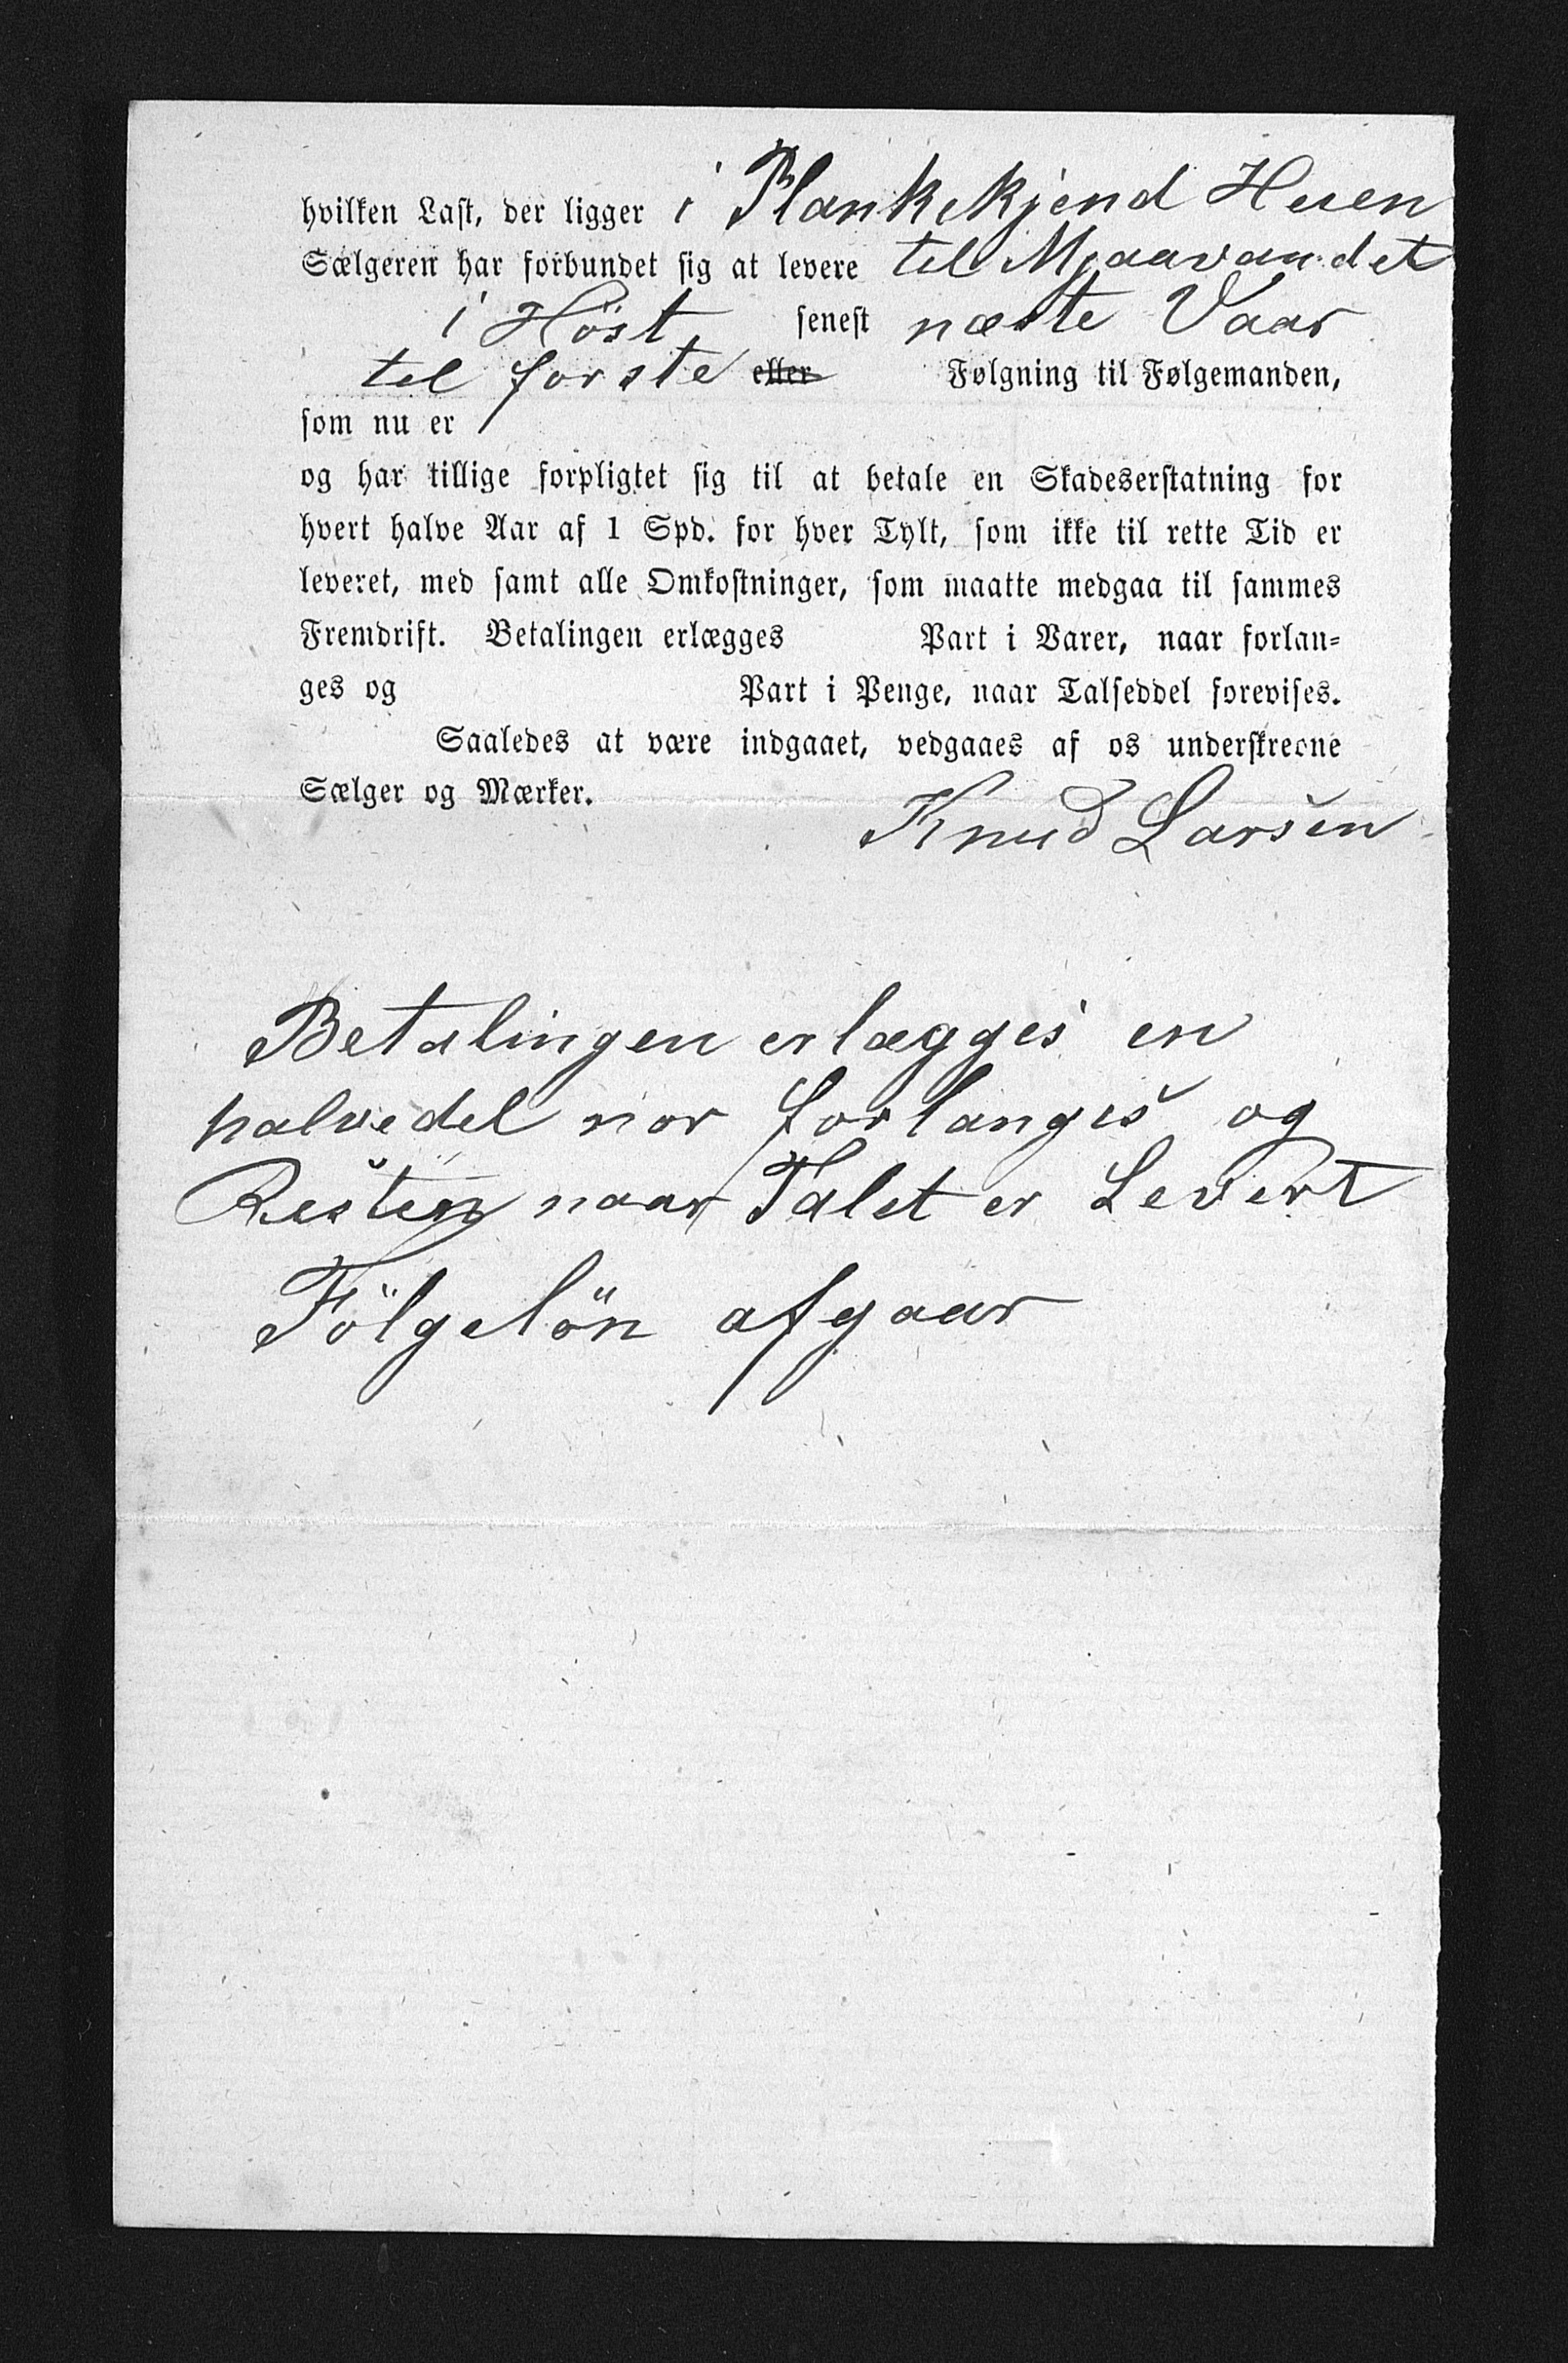 hvilken Last, der ligger i Plankekjend Heien
Sælgeren har forbundet sig at levere til Mjaavandet
i Höst, senest næste Vaar
til forste ~~eller~~ Følgning til Følgemanden,
som nu er
og har tillige forpligtet sig til at betale en Skadeserstatning for
hvert halve Aar af 1 Spd. for hver Tylt, som ikke til rette Tid er
leveret, med samt alle Omkostninger, som maatte medgaa til sammes
Fremdrift. Betalingen erlægges Part i Varer, naar forlan-
ges og Part i Penge, naar Talseddel forevises.
Saaledes at være indgaaet, vedgaaes af os underskrevne
Sælger og Mærker.
Knud Larsen
Betalingen erlægges en
halvedel nor forlanges og
Resten naar Talet er Levert
Fölgelön afgaar